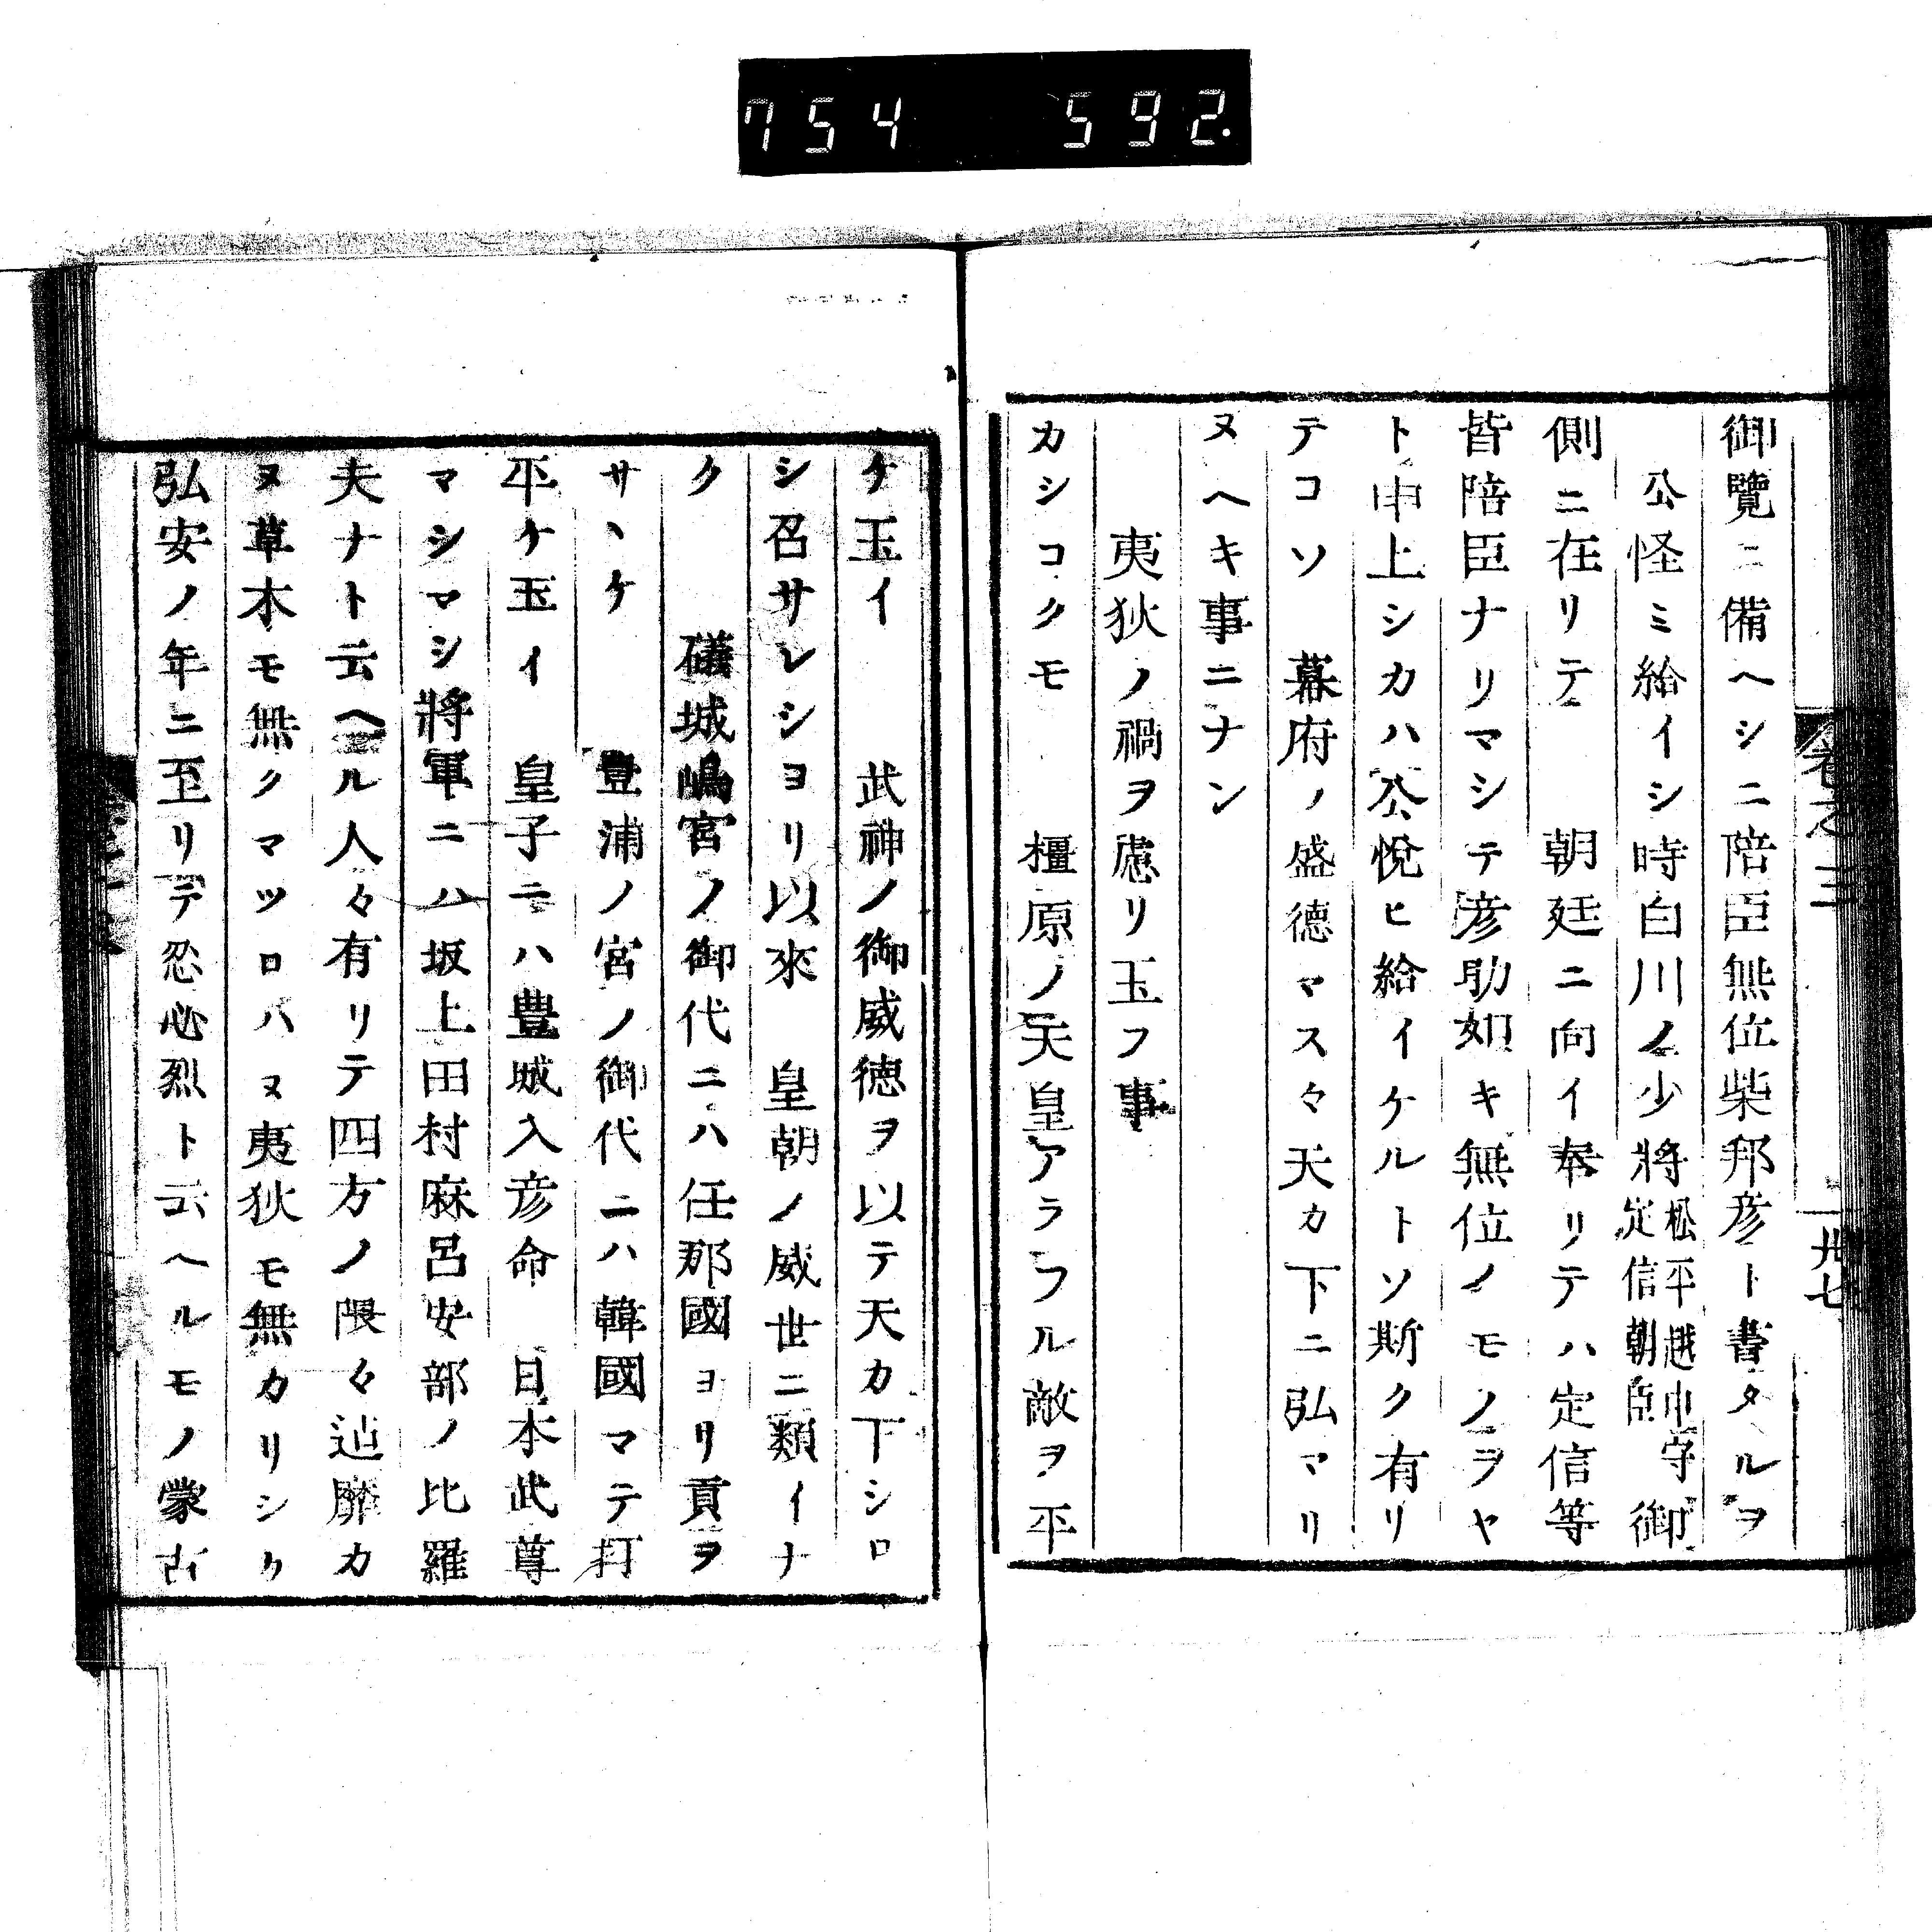 754 592.
卷之三 卅七
御覽ニ備ヘシニ陪臣無位柴邦彦ト書タルヲ
公怪ミ給イシ時白川ノ少將松平越中守定信朝臣御
側ニ在リテ 朝廷ニ向イ奉リテハ定信等
皆陪臣ナリマシテ彦助如キ無位ノモノヲヤ
ト申上シカハ公悅ヒ給イケルトソ斯ク有リ
テコソ 幕府ノ盛徳マスマ天カ下ニ弘マリ
ヌヘキ事ニナン
夷狄ノ禍ヲ慮リ玉フ事
カシコクモ 橿原ノ天皇アラフル敵ヲ平
ケ玉イ 武神ノ御威徳ヲ以テ天カ下シロ
シ召サレショリ以來 皇朝ノ威世ニ類イナ
ク 礒城嶋宮ノ御代ニハ任那國ヨリ貢ヲ
サヽケ 豊浦ノ宮ノ御代ニハ韓國マテ打
平ケ玉イ 皇子ニハ豊城入彦命 日本武尊
マシマシ將軍ニハ坂上田村麻呂安部ノ比羅
夫ナト云ヘル人々有リテ四方ノ隈々迠靡カ
ヌ草木モ無クマツロハヌ夷狄モ無カリシク
弘安ノ年ニ至リテ忽必烈ト云ヘルモノ蒙古